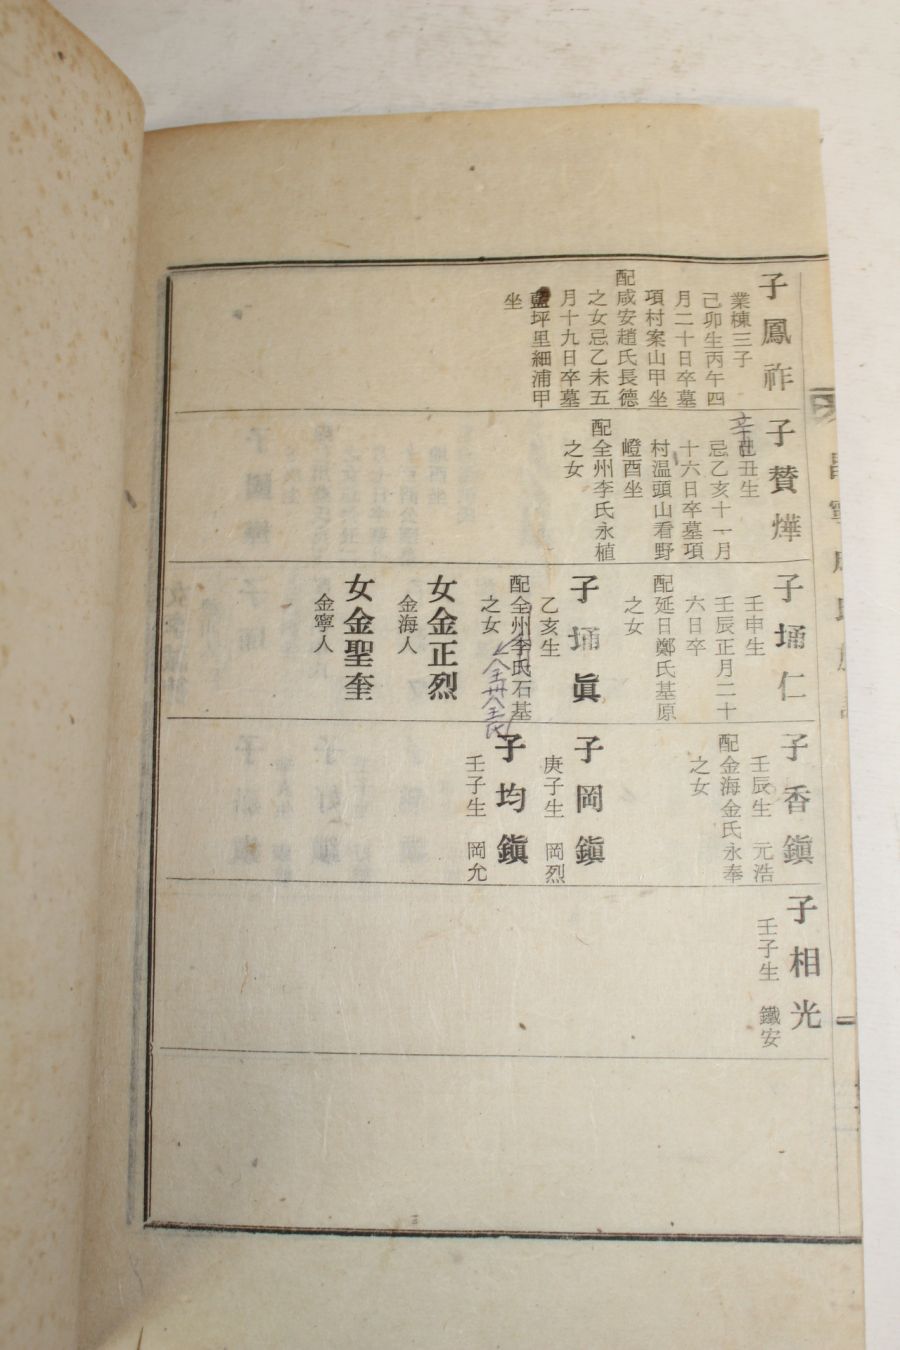 子鳳祚
業棟三子
己卯生丙午四
月二十日卒墓
項村案山甲坐
配咸安趙氏長德
之女忌乙未五
月十九日卒墓
藍坪里細浦甲
坐
子贊燁
辛
己丑生
忌乙亥十一月
十六日卒墓項
村温頭山看野
嶝酉坐
配全州李氏永植
之女
子埇仁
壬申生
壬辰正月二十
六日卒
配延日鄭氏基原
之女
子埇眞
乙亥生
配全州李氏石基
之女
女金正烈
金海人
女金聖奎
金寧人
子香鎭
壬辰生 元浩
配金海金氏永奉
之女
子岡鎭
庚子生 岡烈
子均鎭
壬子生 岡允
子相光
壬子生 鐵安